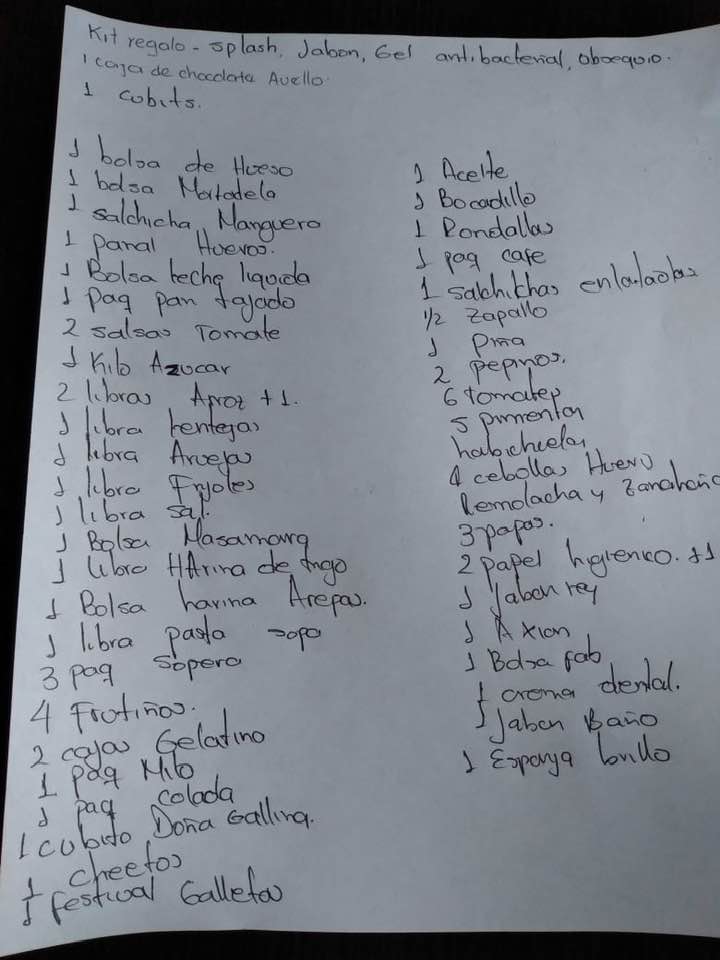 Kit regalo - splash, Jabon, Gel antibacterial, obsequio.
1 caja de chocolata Avello
1 cubits.
1 bolsa de Hueso
1 bolsa Mortadela
1 salchicha Manguera
1 panal Huevos.
1 Bolsa leche liquida
1 paq pan tajado
2 salsas Tomate
1 Kilo Azucar
2 libras Arroz +1.
1 libra lentejas
1 libra Arvejas
1 libra Frijoles
1 libra sal.
1 Bolsa Masamorra
1 libra HArina de trigo
1 Bolsa harina Arepas.
1 libra pasta sopa
3 paq sopero
4 Frutiños.
2 cajas Gelatina
1 paq Milo
1 paq colada
1 cubito Doña Gallina.
1 cheetos
1 festival Galletas
1 Aceite
1 Bocadillo
1 Rondallas
1 paq cafe
1 salchichas enlatadas
1/2 Zapallo
1 piña
2 pepinos.
6 tomates
5 pimenton
habichuelas
4 cebollas Huevo
Remolacha y Zanahoria
3 papas.
2 papel higienico. +1
1 Jabon rey
1 Axion
1 Bolsa fab
1 crema dental.
1 Jabon Baño
1 Esponja brillo